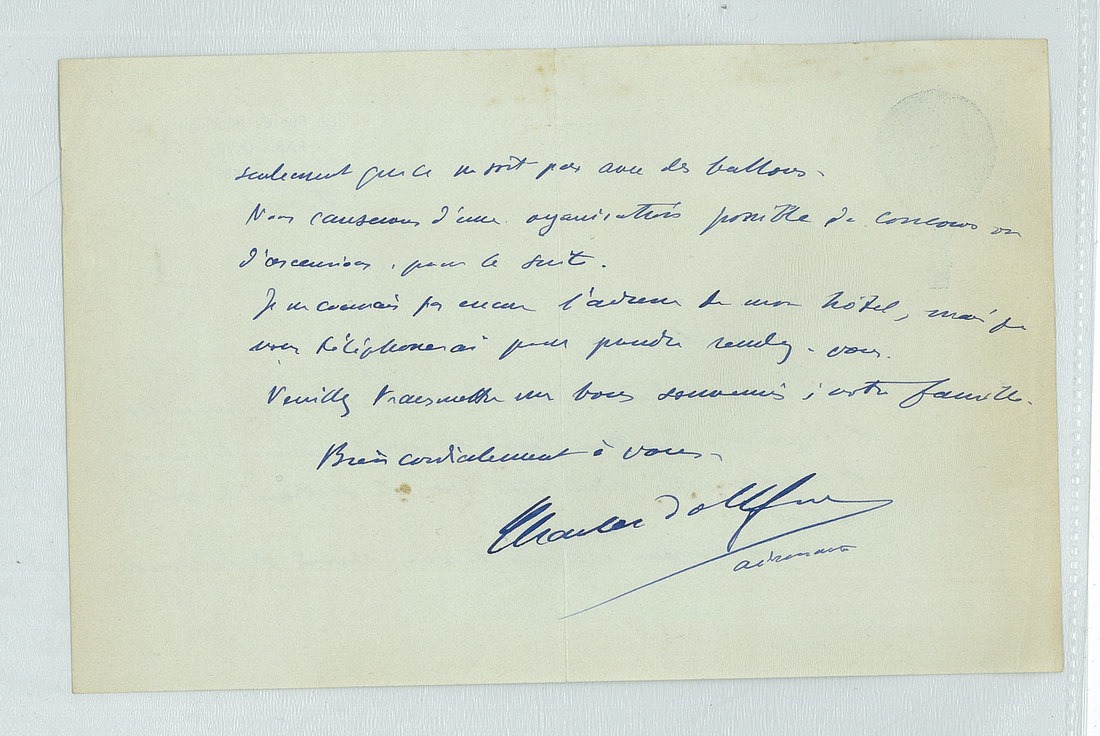 seulement que ce ne soit pas avec des ballons.
Nous causerons d'une organisation possible de concours ou
d'ascensions, pour la suite.
Je ne connais pas encore l'adresse de mon hôtel, mais je
vous téléphonerai pour prendre rendez-vous.
Veuillez transmettre mes bons souvenirs à votre famille.
Bien cordialement à vous.
Charles Dollfus
aéronaute